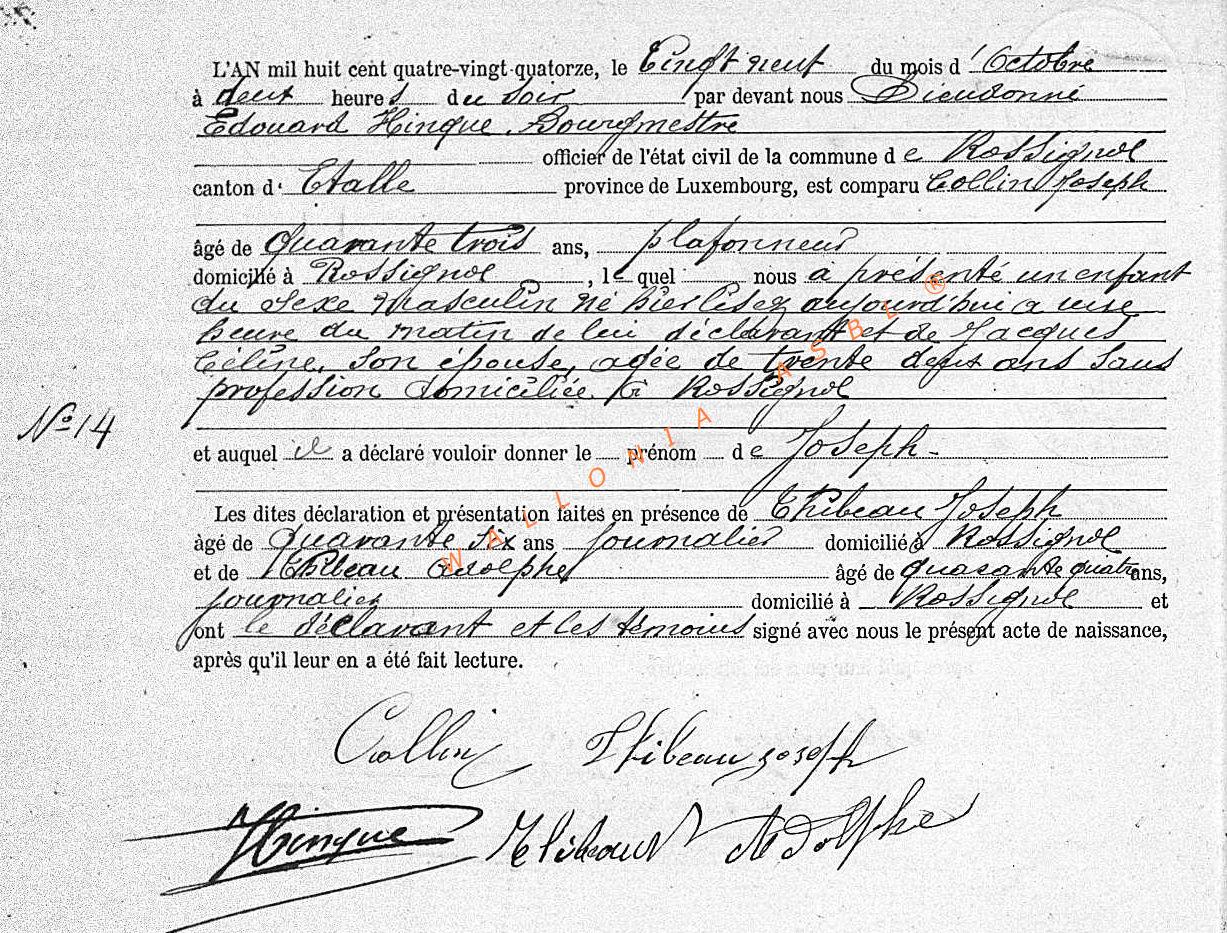 L'AN mil huit cent quatre-vingt-quatorze, le Vingt neuf du mois d' Octobre
à deux heures du soir par devant nous Dieudonné
Edouard Hinque Bourgmestre
officier de l'état civil de la commune de Rossignol
canton d' Etalle province de Luxembourg, est comparu Collin Joseph
âgé de Quarante trois ans, plafonneur
domicilié à Rossignol, lequel nous a présenté un enfant
du sexe Masculin né hier lisez aujourd'hui a une
heure du matin de lui déclarant et de Jacques
Céline, son épouse, agée de trente deux ans sans
profession domiciliée à Rossignol
No 14
et auquel il a déclaré vouloir donner le prénom de Joseph -
Les dites déclaration et présentation faites en présence de Thibeau Joseph
âgé de Quarante six ans Journalier domicilié à Rossignol
et de Thibeau Adolphe âgé de quarante quatre ans,
journalier domicilié à Rossignol et
ont le déclarant et les témoins signé avec nous le présent acte de naissance,
après qu'il leur en a été fait lecture.
Collin Thibeau Joseph
Hinque Thibeau Adolphe
WALLONIA ASBL ®